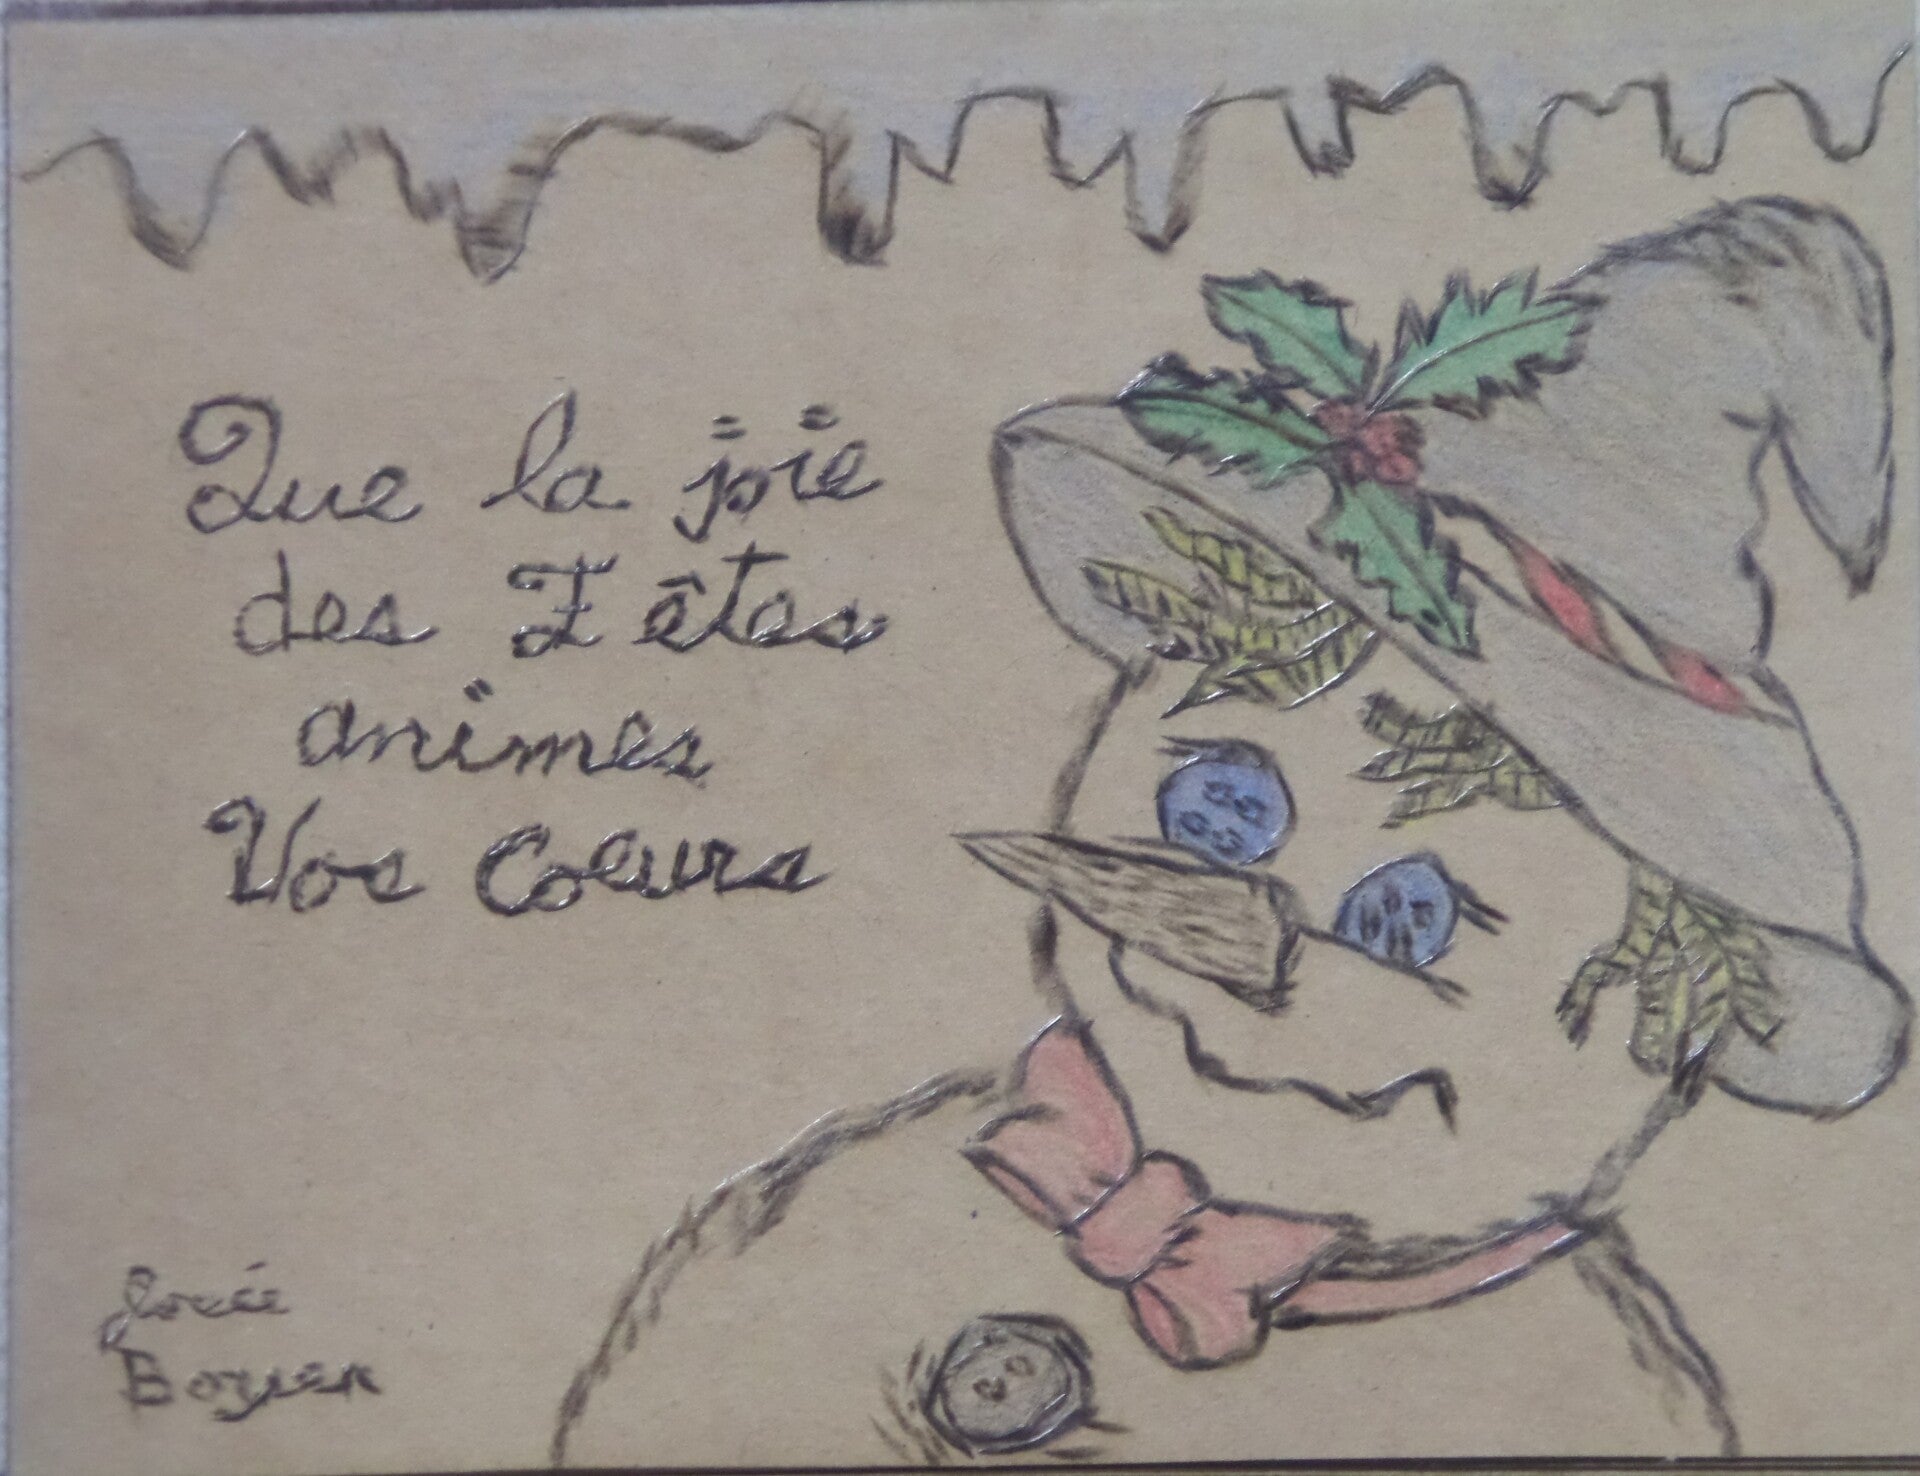 Que la joie
des Fêtes
animes
Vos Coeurs
Josée
Boyer